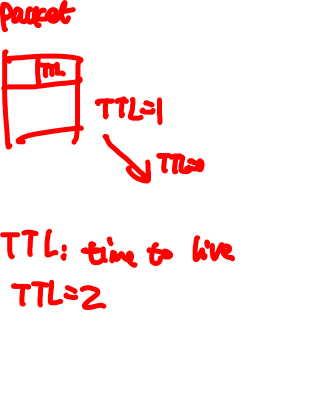 Packet
TTL
TTL=1
TTL=0
TTL: time to live
TTL=2